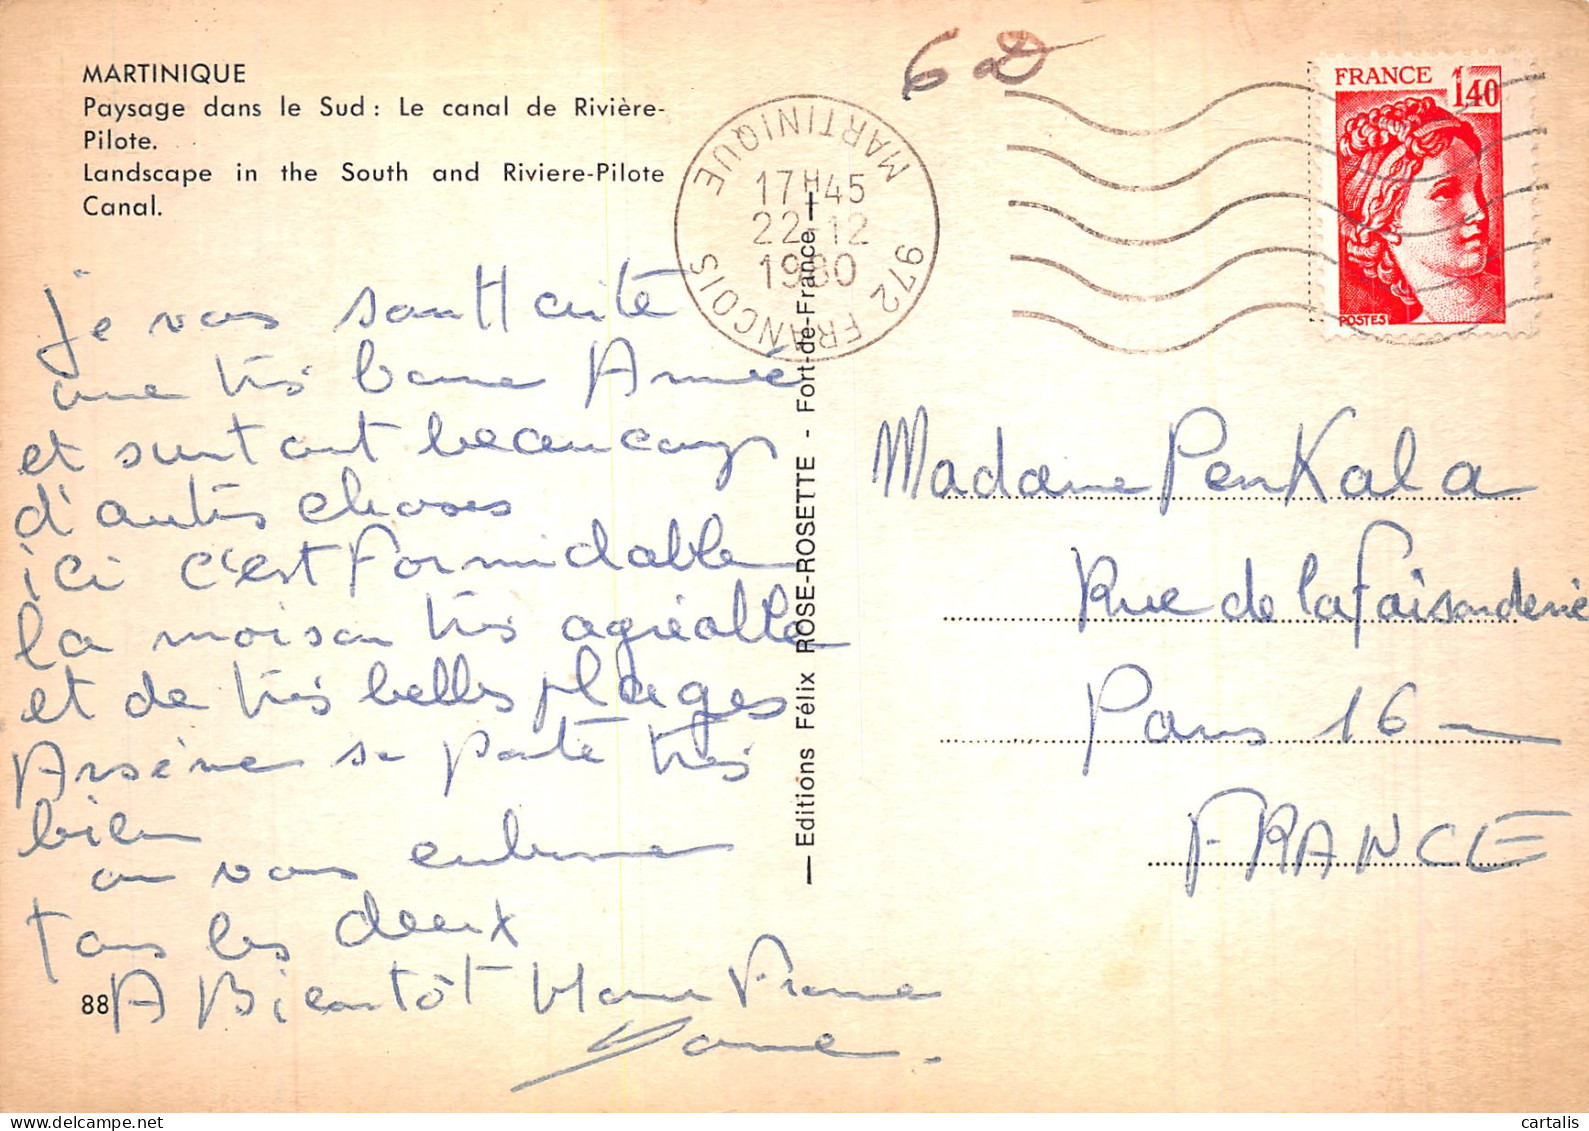 MARTINIQUE
Paysage dans le Sud : Le canal de Rivière-
Pilote.
Landscape in the South and Riviere-Pilote
Canal.
je vous souHaite
une très bonne Année
et surtout beaucoup
d'autres choses
ici c'est Formidable
la maison très agréable
et de très belles plages
Arsène se porte très
bien
on vous embrasse
tous les deux
A Bientôt
88
Editions Félix ROSE-ROSETTE - Fort-de-France
6D
972 FRANCOIS MARTINIQUE
17H45
22-12
1980
FRANCE
1,40
POSTES
Madame PenKala
Rue de la Faisanderie
Paris 16
FRANCE
cartalis